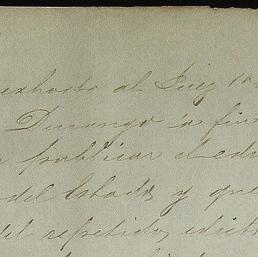 exhorto al Juez 1o
Durango á fin
publicar el edic
del Estado, y que
del repetido edicto